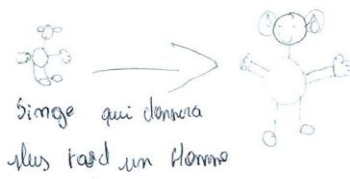 Singe qui donnera
plus tard un Homme